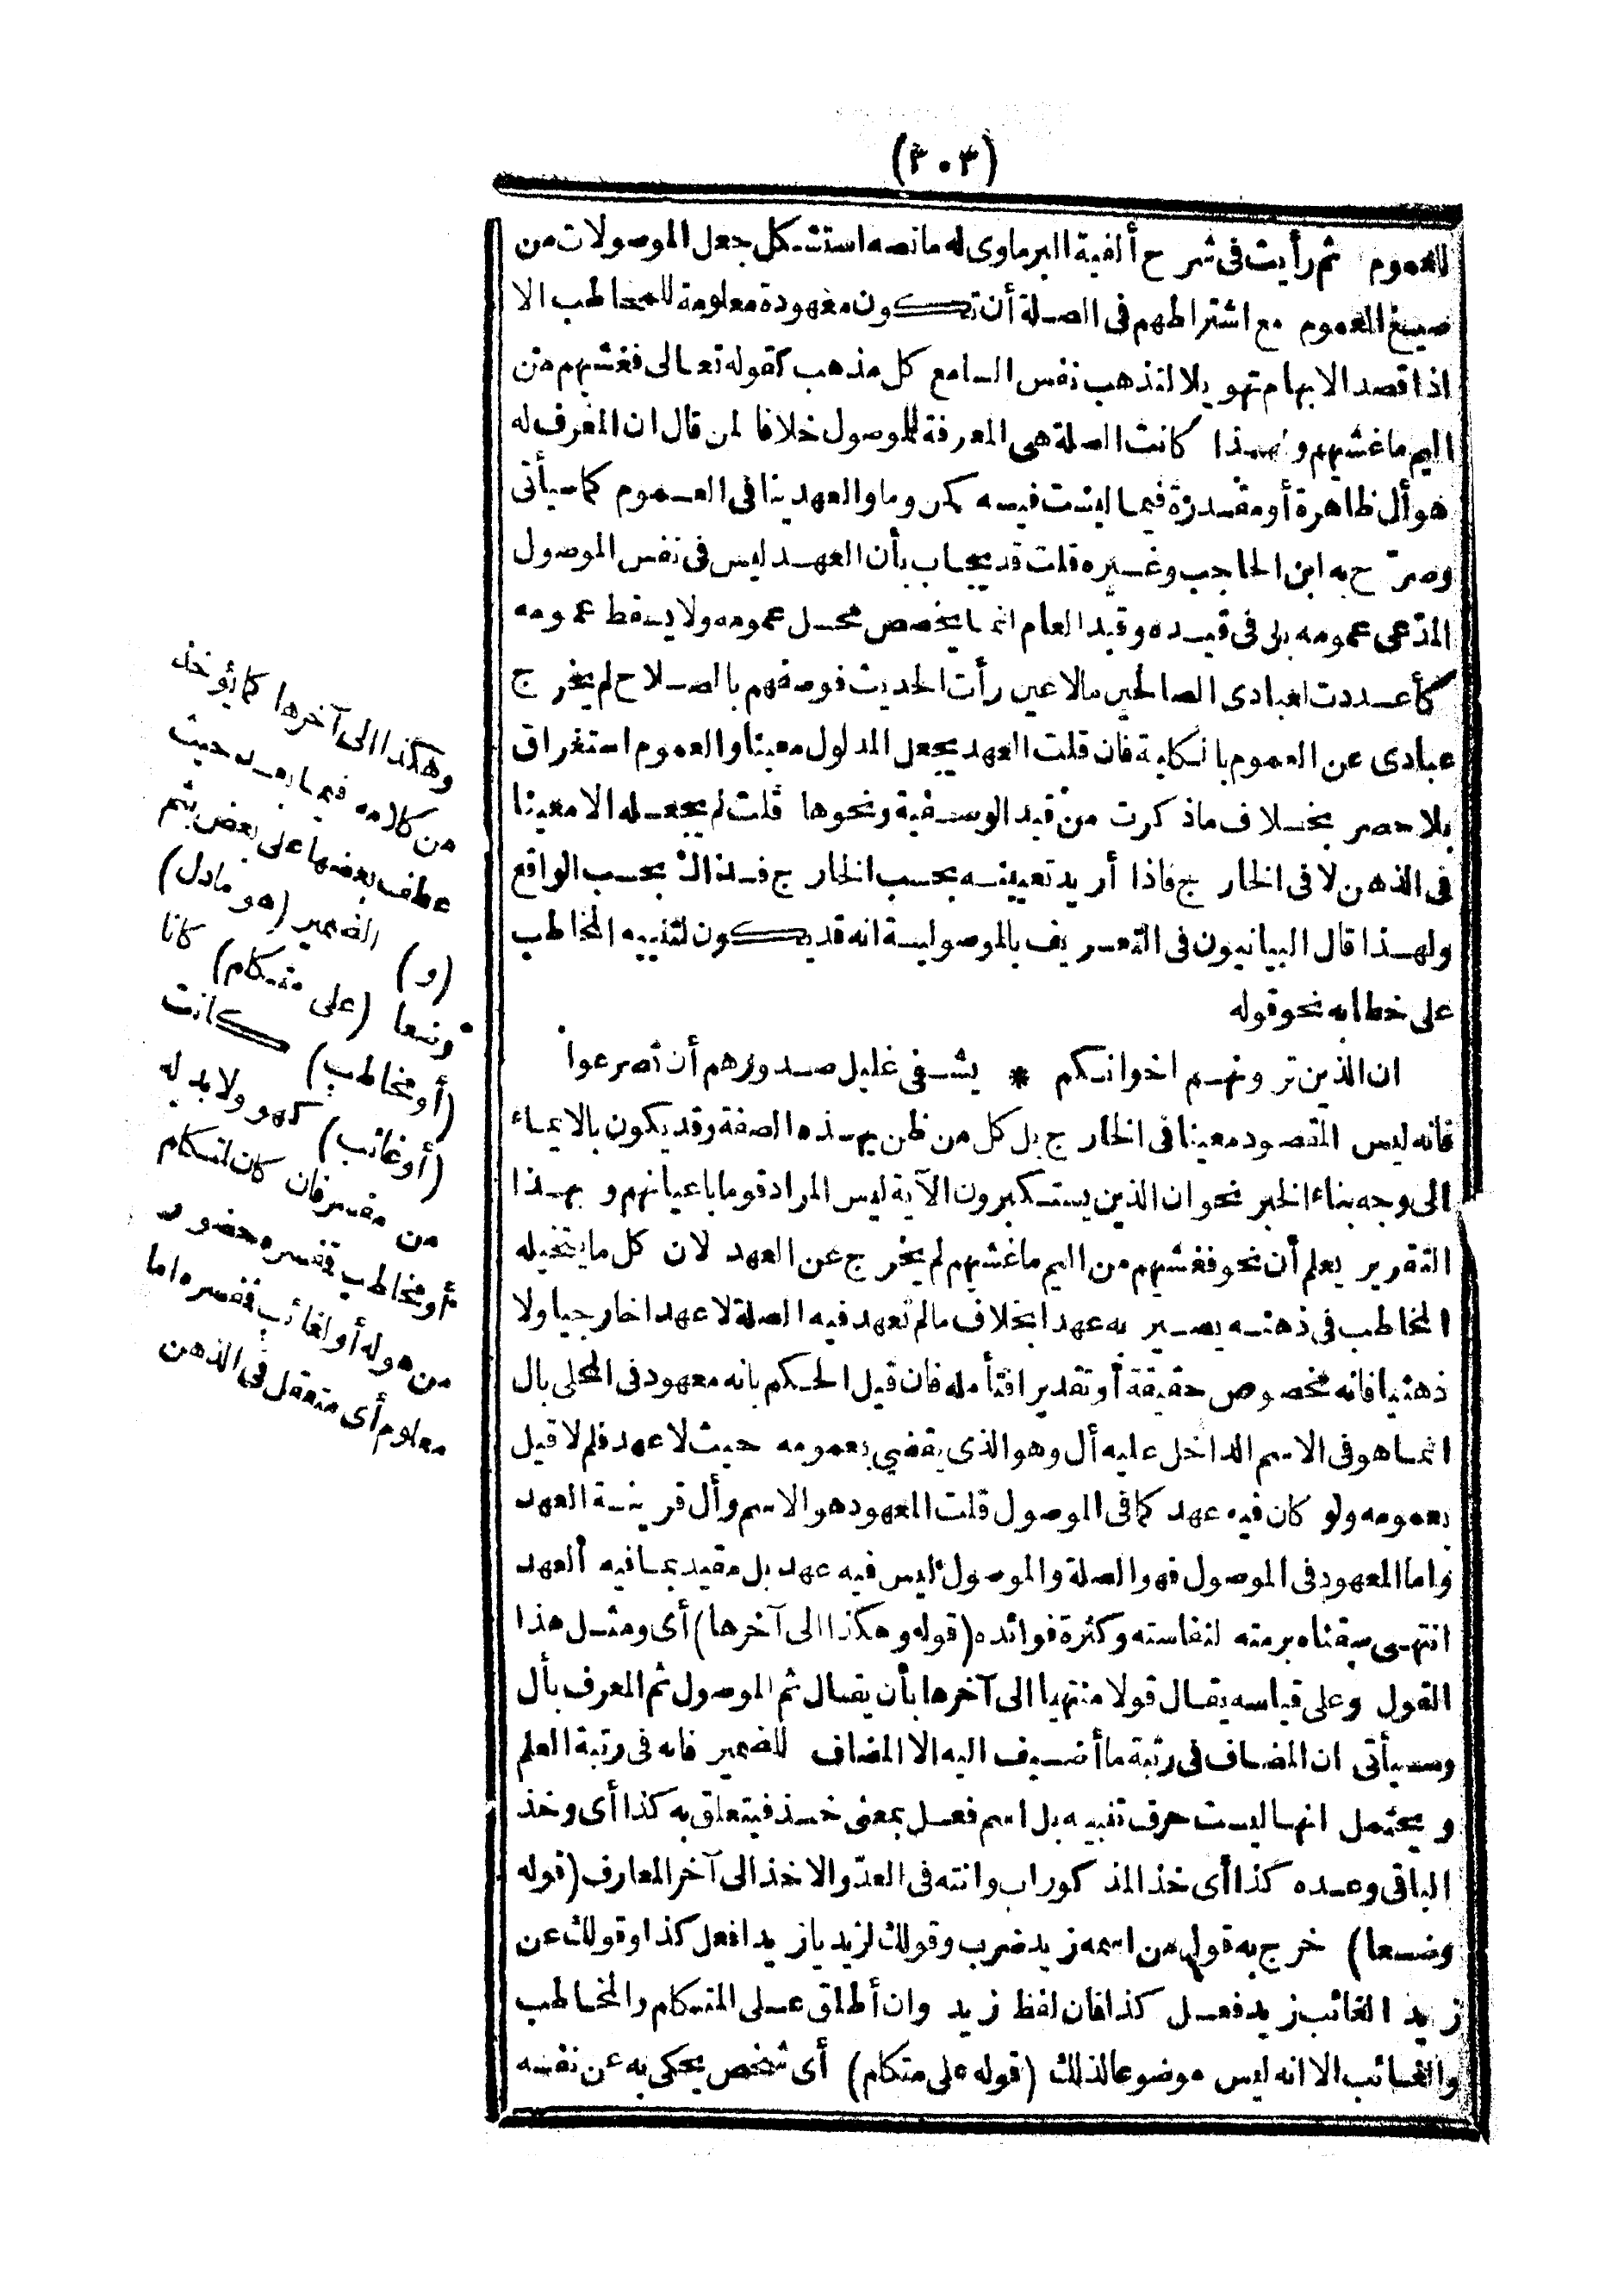 (٣٠٣)
للعموم ثم رأيت فى شرح ألفية البرماوى له مانصه استشكل جعل الموصولات من
صيغ العموم مع اشتراطهم فى الصلة أن تكون معهودة معلومة للمخاطب الا
اذا قصد الابهام تهويلا لتذهب نفس السامع كل مذهب كقوله تعالى فغشيهم من
اليم ماغشيهم ولهذا كانت الصلة هى المعرفة للموصول خلافا لمن قال ان المعرف له
هو أل ظاهرة أو مقدرة فيما ليست فيه كمن وما والعهد ينافى العموم كما سيأتى
وصرّح به ابن الحاجب وغيره قلت قد يجاب بأن العهد ليس فى نفس الموصول
المدّعى عمومه بل فى قيده وقيد العام انما يخصص محل عمومه ولا يسقط عمومه
كأعددت لعبادى الصالحين مالا عين رأت الحديث فوصفهم بالصلاح لم يخرج
عبادى عن العموم بالكلية فان قلت العهد يجعل المدلول معينا والعموم استغراق
بلا حصر بخلاف ماذكرت من قيد الوصفية ونحوها قلت لم يجعله الا معينا
فى الذهن لا فى الخارج فاذا أريد تعيينه بحسب الخارج فذالك بحسب الواقع
ولهذا قال البيانيون فى التعريف بالموصولية انه قد يكون لتنبيه المخاطب
على خطابه نحو قوله
ان الذين ترونهم اخوانكم * يشفى غليل صدورهم أن تصرعوا
فانه ليس المقصود معينا فى الخارج بل كل من ظن بهذه الصفة وقد يكون بالايماء
الى وجه بناء الخبر نحو ان الذين يستكبرون الآية ليس المراد قوما باعيانهم وبهذا
التقرير يعلم أن نحو فغشيهم من اليم ماغشيهم لم يخرج عن العهد لان كل ما يتخيله
المخاطب فى ذهنه يصير به عهدا بخلاف مالم تعهد فيه الصلة لا عهدا خارجيا ولا
ذهنيا فانه مخصوص حقيقة أو تقديرا فتأمله فان قيل الحكم بانه معهود فى المحلى بال
انما هو فى الاسم الداخل عليه أل وهو الذى يقضى بعمومه حيث لا عهد فلم لا قيل
بعمومه ولو كان فيه عهد كما فى الموصول قلت المعهود هو الاسم وأل قرينة العهد
واما المعهود فى الموصول فهو الصلة والموصول ليس فيه عهد بل مقيد بما فيه العهد
انتهى سقناه برمته لنفاسته وكثرة فوائده (قوله وهكذا الى آخرها) أى ومثل هذا
القول وعلى قياسه يقال قولا منتهيا الى آخرها بأن يقال ثم الموصول ثم المعرف بأل
وسيأتى ان المضاف فى رتبة ما أضيف اليه الا المضاف للضمير فانه فى رتبة العلم
ويحتمل انها ليست حرف تنبيه بل اسم فعل بمعنى خذ فيتعلق به كذا أى وخذ
الباقى وعده كذا أى خذ المذكور اب وانته فى العدّ والاخذ الى آخر المعارف (قوله
وضعا) خرج به قول من اسمه زيد ضرب وقولك لزيد يا زيد افعل كذا وقولك عن
زيد الغائب زيد فعل كذا فان لفظ زيد وان أطلق على المتكلم والمخاطب
والغائب الا انه ليس موضوعا لذلك (قوله على متكلم) أى شخص يحكى به عن نفسه
وهكذا الى آخرها كما يؤخذ
من كلامه فيما بعد حيث
عطف بعضها على بعض بثم
(و) الضمير (هو مادل)
وضعا (على متكلم) كانا
(أو مخاطب) كانت
(أو غائب) كهو ولا بد له
من مفسر فان كان لمتكلم
أو مخاطب فمفسره حضور
من هو له أو لغائب فمفسره اما
معلوم أى متعقل فى الذهن